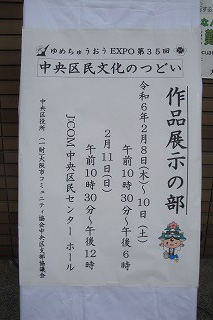 ゆめちゅうおうEXPO第35回
中央区民文化のつどい
作品展示の部
令和6年2月8日(木)～10日(土)
午前10時30分～午後6時
2月11日(日)
午前10時30分～午後12時
JCOM中央区民センター ホール
中央区役所 (一財)大阪市コミュニティ協会中央区支部協議会